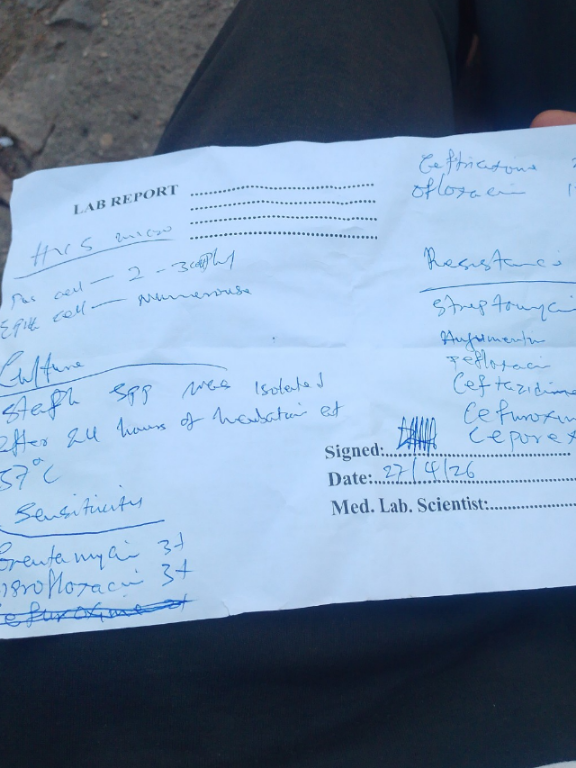 LAB REPORT
HVS micro
Pus cell — 2 - 3
Epith cell — Numerouse
Culture
Staph spp was isolated
after 24 hours of incubation at
37°C
Sensitivity
Gentamycin 3+
floxacin 3+
Cefuroxime
Ceftriaxone
Ofloxacin
Resistance
Streptomycin
Augumentin
Pefloxacin
Ceftazidime
Cefuroxim
Ceporex
Signed:
Date: 27/4/26
Med. Lab. Scientist: